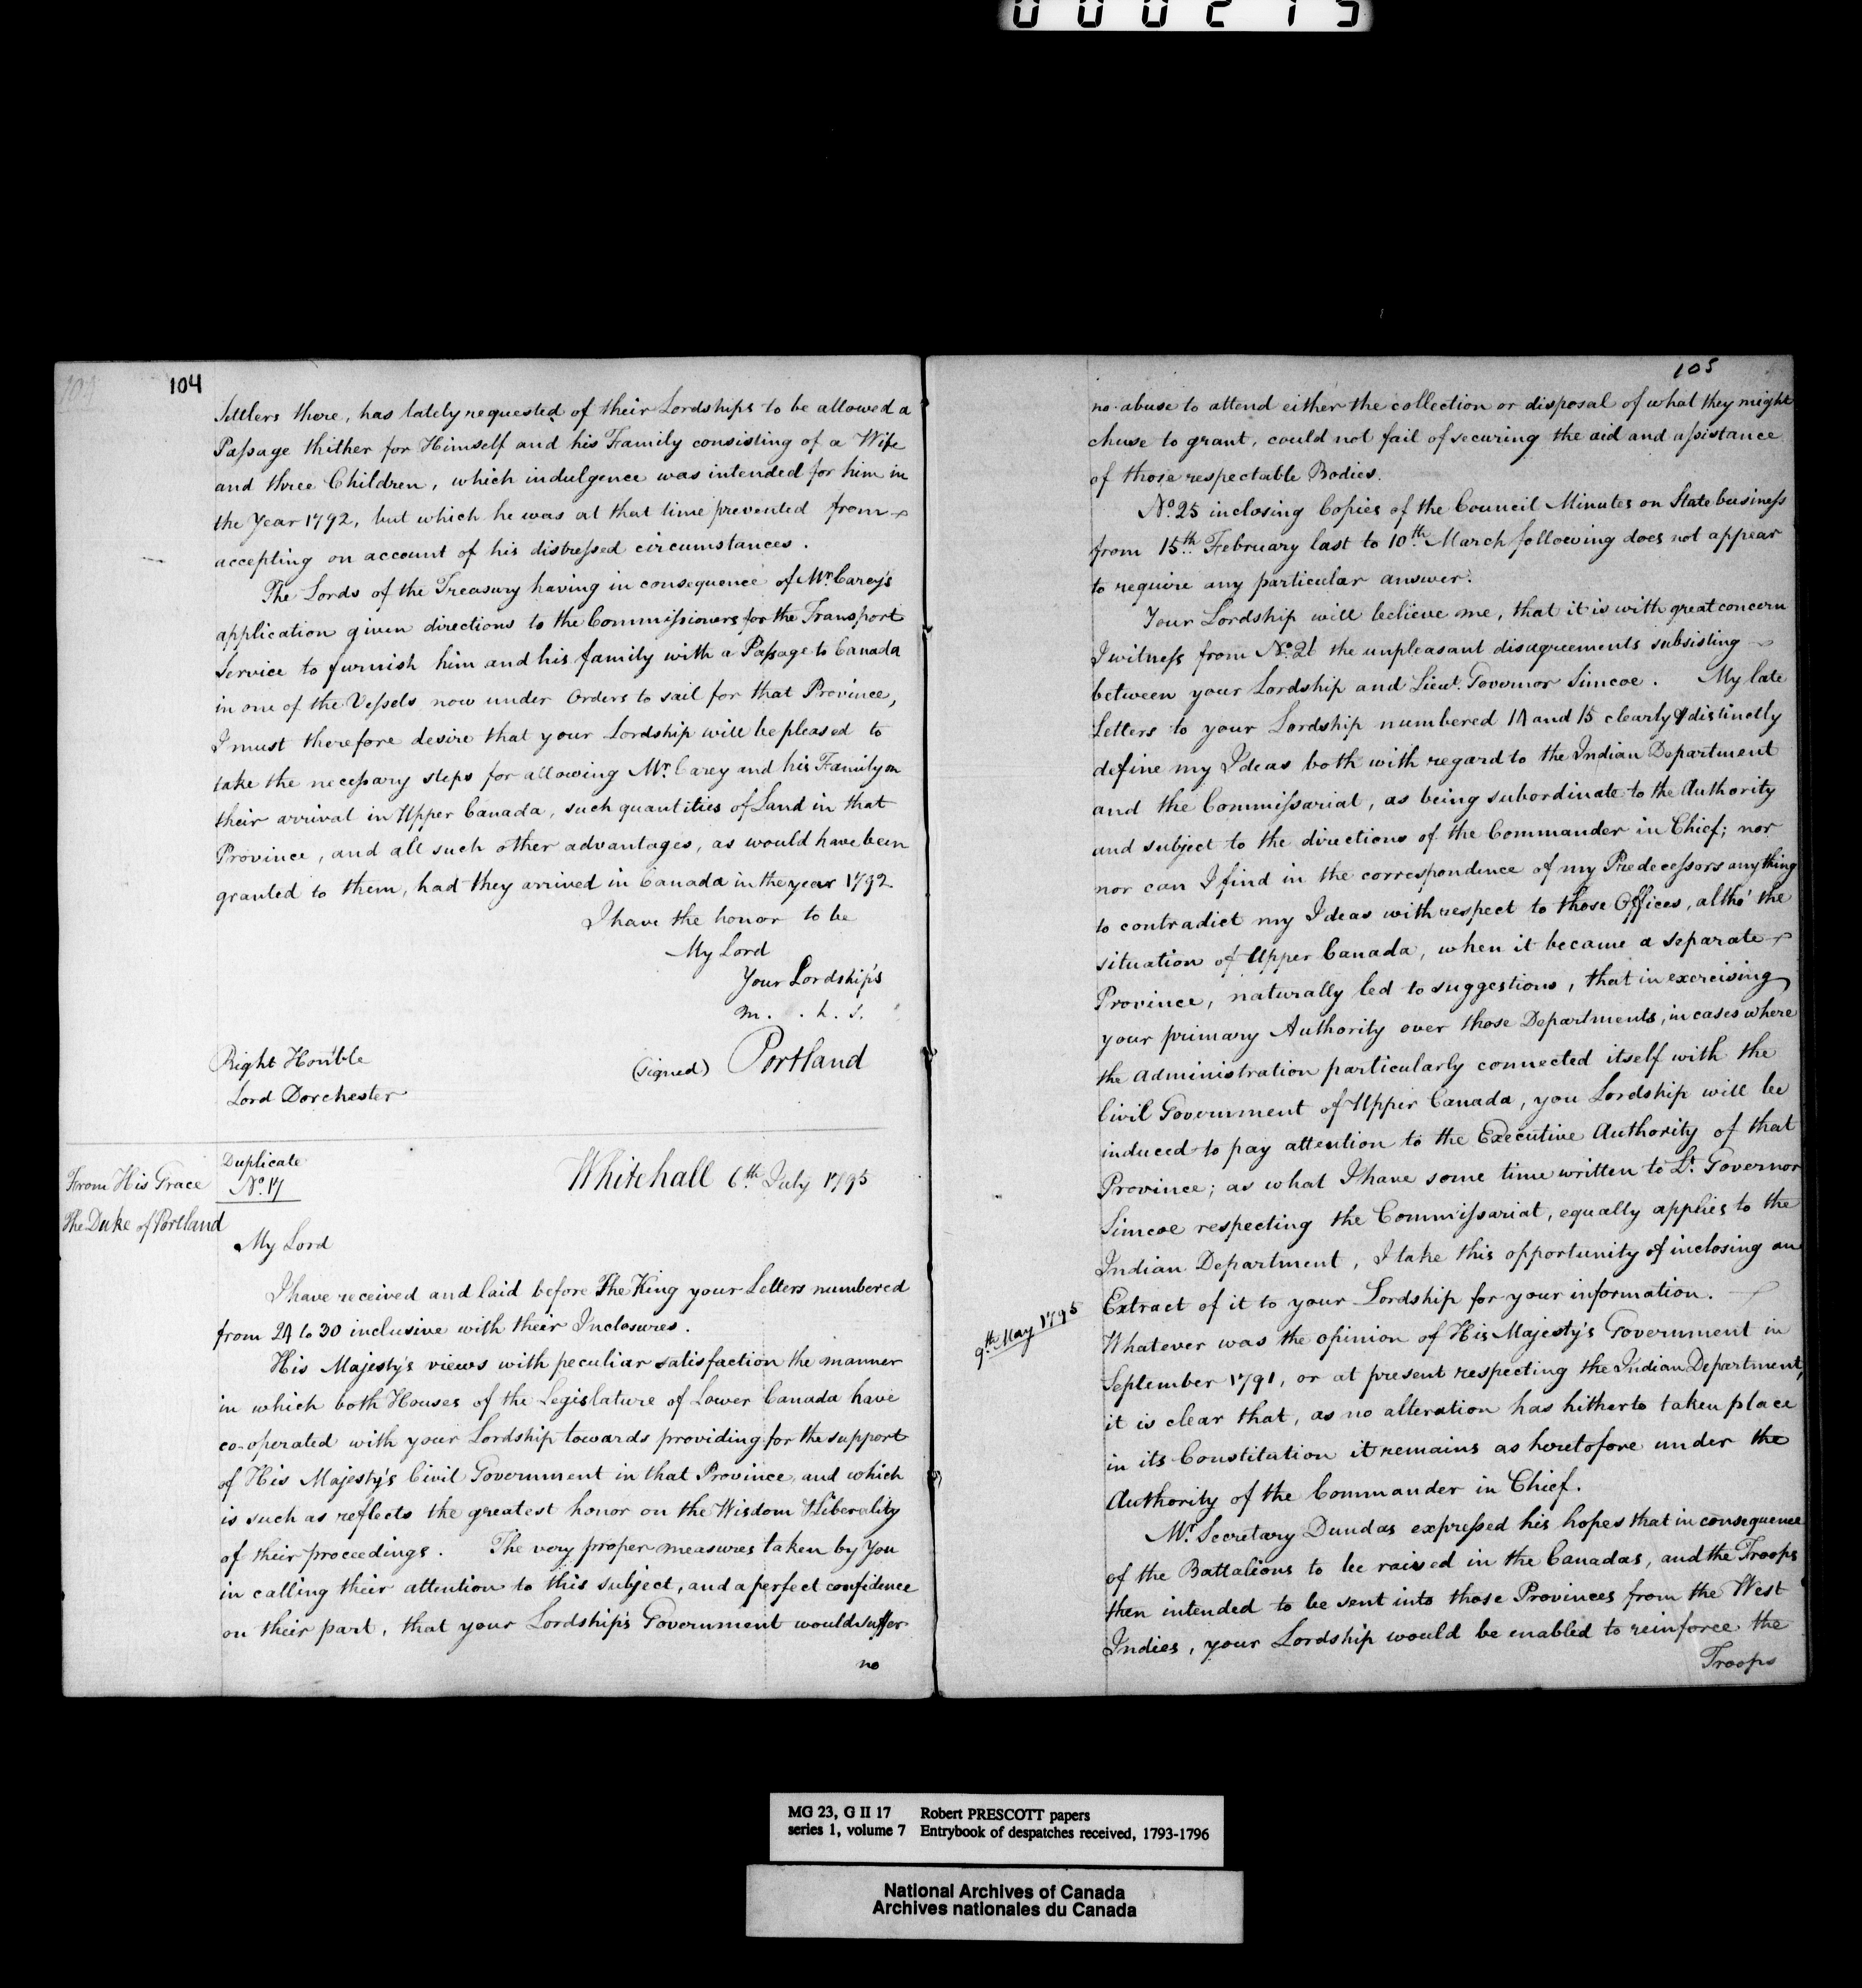 000215
104
104
Settlers there, has lately requested of their Lordships to be allowed a
Passage thither for Himself and his Family consisting of a Wife
and three Children, which indulgence was intended for him in
the Year 1792, but which he was at that time prevented from
accepting on account of his distressed circumstances.
The Lords of the Treasury having in consequence of Mr. Carey's
application given directions to the Commissioners for the Transport
Service to furnish him and his family with a Passage to Canada
in one of the Vessels now under Orders to sail for that Province,
I must therefore desire that your Lordship will be pleased to
take the necessary steps for allowing Mr. Carey and his Family on
their arrival in Upper Canada, such quantities of Land in that
Province, and all such other advantages, as would have been
granted to them, had they arrived in Canada in the year 1792
I have the honor to be
My Lord
Your Lordship's
m. . h. s.
(signed) Portland
Right Hon'ble
Lord Dorchester
From His Grace
The Duke of Portland
Duplicate
No. 17
Whitehall 6th July 1795
My Lord
I have received and laid before The King your Letters numbered
from 24 to 30 inclusive with their Inclosures.
His Majesty's views with peculiar satisfaction the manner
in which both Houses of the Legislature of Lower Canada have
co-operated with your Lordship towards providing for the support
of His Majesty's Civil Government in that Province, and which
is such as reflects the greatest honor on the Wisdom & Liberality
of their proceedings. The very proper measures taken by You
in calling their attention to this subject, and a perfect confidence
on their part, that your Lordship's Government would suffer
no
105
no abuse to attend either the collection or disposal of what they might
chuse to grant, could not fail of securing the aid and assistance
of those respectable Bodies.
No. 25 inclosing Copies of the Council Minutes on State business
from 15th. February last to 10th. March following does not appear
to require any particular answer.
Your Lordship will believe me, that it is with great concern
I witness from No. 26 the unpleasant disagreements subsisting
between your Lordship and Lieut. Governor Simcoe. My late
Letters to your Lordship numbered 14 and 15 clearly & distinctly
define my Ideas both with regard to the Indian Department
and the Commissariat, as being subordinate to the Authority
and subject to the directions of the Commander in Chief; nor
nor can I find in the correspondence of my Predecessors any thing
to contradict my Ideas with respect to those Offices, altho' the
situation of Upper Canada, when it became a separate
Province, naturally led to suggestions, that in exercising
your primary Authority over those Departments, in cases where
the administration particularly connected itself with the
Civil Government of Upper Canada, you Lordship will be
induced to pay attention to the Executive Authority of that
Province; as what I have some time written to Lt. Governor
Simcoe respecting the Commissariat, equally applies to the
Indian Department, I take this opportunity of inclosing an
9th May 1795
Extract of it to your Lordship for your information.
Whatever was the opinion of His Majesty's Government in
September 1791, or at present respecting the Indian Department,
it is clear that, as no alteration has hitherto taken place
in its Constitution it remains as heretofore under the
Authority of the Commander in Chief.
Mr. Secretary Dundas expressed his hopes that in consequence
of the Battalions to be raised in the Canadas, and the Troops
then intended to be sent into those Provinces from the West
Indies, your Lordship would be enabled to reinforce the
Troops
MG 23, G II 17 Robert PRESCOTT papers
series 1, volume 7 Entrybook of despatches received, 1793-1796
National Archives of Canada
Archives nationales du Canada